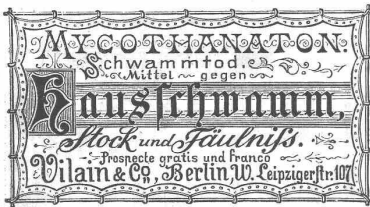 MYCOTHANATON
Schwammtod.
Mittel gegen
Hausſchwamm,
Stock und Fäulniſs.
Prospecte gratis und franco
Vilain & Co., Berlin W. Leipzigerſtr. 107